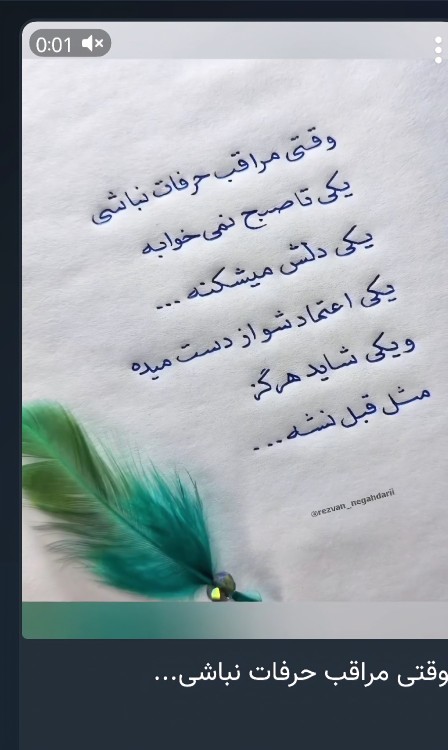 0:01
وقتی مراقب حرفات نباشی
یکی تا صبح نمی خوابه
یکی دلش میشکنه ...
یکی اعتمادشو از دست میده
و یکی شاید هرگز
مثل قبل نشه...
@rezvan_negahdarii
وقتی مراقب حرفات نباشی...